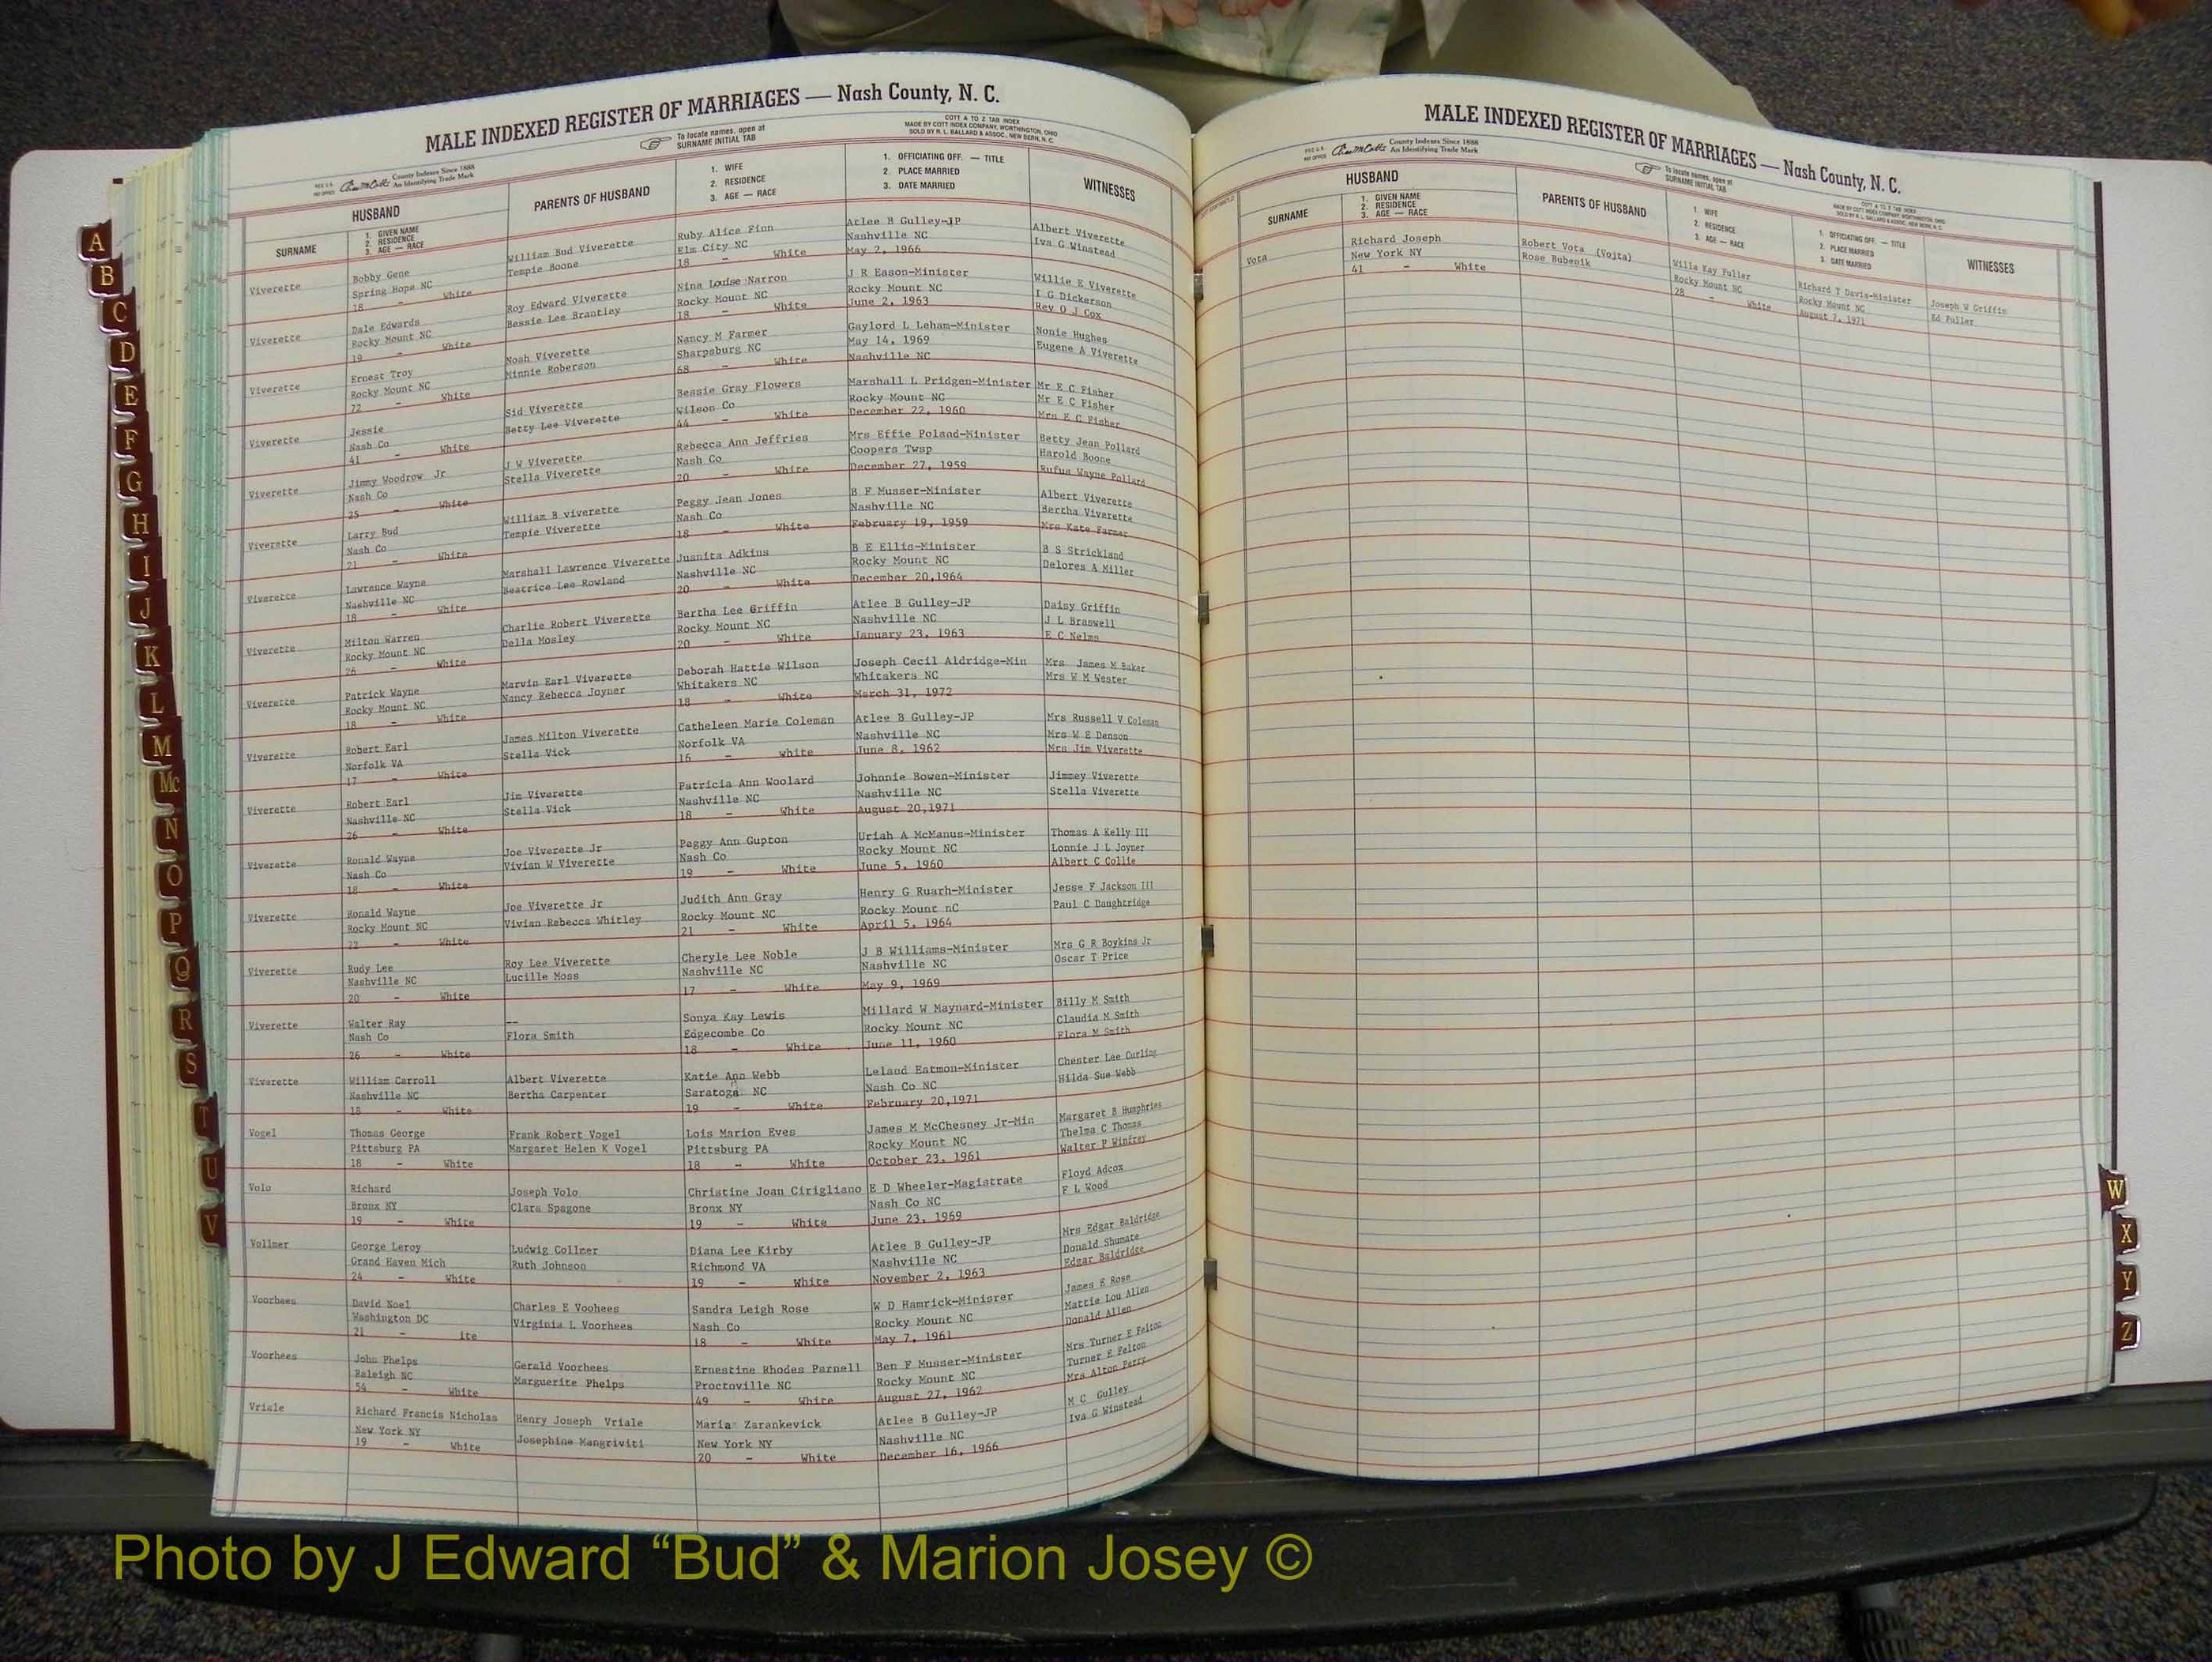 MALE INDEXED REGISTER OF MARRIAGES — Nash County, N. C.
County Indexes Since 1888
An Identifying Trade Mark
To locate names, open at
SURNAME INITIAL TAB
COTT A TO Z TAB INDEX
MADE BY COTT INDEX COMPANY, WORTHINGTON, OHIO
SOLD BY R. L. BALLARD & ASSOC., NEW BERN, N. C.
HUSBAND
SURNAME
1. GIVEN NAME
2. RESIDENCE
3. AGE — RACE
PARENTS OF HUSBAND
1. WIFE
2. RESIDENCE
3. AGE — RACE
1. OFFICIATING OFF. — TITLE
2. PLACE MARRIED
3. DATE MARRIED
WITNESSES
Viverette Bobby Gene William Bud Viverette Ruby Alice Finn Atlee B Gulley-JP Albert Viverette
Spring Hope NC Tempie Boone Elm City NC Nashville NC Iva G Winstead
18 - White 18 - White May 2, 1966
Viverette Dale Edwards Roy Edward Viverette Nina Louise Narron J R Eason-Minister Willie E Viverette
Rocky Mount NC Bessie Lee Brantley Rocky Mount NC Rocky Mount NC I G Dickerson
19 - White 18 - White June 2, 1963 Rev O J Cox
Viverette Ernest Troy Noah Viverette Nancy M Farmer Gaylord L Leham-Minister Nonie Hughes
Rocky Mount NC Minnie Roberson Sharpsburg NC May 14, 1969 Eugene A Viverette
72 - White 68 - White Nashville NC
Viverette Jessie Sid Viverette Bessie Gray Flowers Marshall L Pridgen-Minister Mr E C Fisher
Nash Co Betty Lee Viverette Wilson Co Rocky Mount NC Mr E C Fisher
41 - White 44 - White December 22, 1960 Mrs E C Fisher
Viverette Jimmy Woodrow Jr J W Viverette Rebecca Ann Jeffries Mrs Effie Poland-Minister Betty Jean Pollard
Nash Co Stella Viverette Nash Co Coopers Twsp Harold Boone
25 - White 20 - White December 27, 1959 Rufus Wayne Pollard
Viverette Larry Bud William B viverette Peggy Jean Jones B F Musser-Minister Albert Viverette
Nash Co Tempie Viverette Nash Co Nashville NC Bertha Viverette
21 - White 18 - White February 19, 1959 Mrs Kate Farmer
Viverette Lawrence Wayne Marshall Lawrence Viverette Juanita Adkins B E Ellis-Minister B S Strickland
Nashville NC Beatrice Lee Rowland Nashville NC Rocky Mount NC Delores A Miller
18 - White 20 - White December 20,1964
Viverette Milton Warren Charlie Robert Viverette Bertha Lee Griffin Atlee B Gulley-JP Daisy Griffin
Rocky Mount NC Della Mosley Rocky Mount NC Nashville NC J L Braswell
26 - White 20 - White January 23, 1963 E C Nelms
Viverette Patrick Wayne Marvin Earl Viverette Deborah Hattie Wilson Joseph Cecil Aldridge-Min Mrs James M Baker
Rocky Mount NC Nancy Rebecca Joyner Whitakers NC Whitakers NC Mrs W M Wester
18 - White 18 - White March 31, 1972
Viverette Robert Earl James Milton Viverette Catheleen Marie Coleman Atlee B Gulley-JP Mrs Russell V Coleman
Norfolk VA Stella Vick Norfolk VA Nashville NC Mrs W E Denson
17 - White 16 - white June 8, 1962 Mrs Jim Viverette
Viverette Robert Earl Jim Viverette Patricia Ann Woolard Johnnie Bowen-Minister Jimmey Viverette
Nashville NC Stella Vick Nashville NC Nashville NC Stella Viverette
26 - White 18 - White August 20,1971
Viverette Ronald Wayne Joe Viverette Jr Peggy Ann Gupton Uriah A McManus-Minister Thomas A Kelly III
Nash Co Vivian W Viverette Nash Co Rocky Mount NC Lonnie J L Joyner
18 - White 19 - White June 5, 1960 Albert C Collie
Viverette Ronald Wayne Joe Viverette Jr Judith Ann Gray Henry G Ruarh-Minister Jesse F Jackson III
Rocky Mount NC Vivian Rebecca Whitley Rocky Mount NC Rocky Mount nC Paul C Daughtridge
22 - White 21 - White April 5, 1964
Viverette Rudy Lee Roy Lee Viverette Cheryle Lee Noble J B Williams-Minister Mrs G R Boykins Jr
Nashville NC Lucille Moss Nashville NC Nashville NC Oscar T Price
20 - White 17 - White May 9, 1969
Viverette Walter Ray -- Sonya Kay Lewis Millard W Maynard-Minister Billy M Smith
Nash Co Flora Smith Edgecombe Co Rocky Mount NC Claudia M Smith
26 - White 18 - White June 11, 1960 Flora M Smith
Viverette William Carroll Albert Viverette Katie Ann Webb Leland Eatmon-Minister Chester Lee Curling
Nashville NC Bertha Carpenter Saratoga NC Nash Co NC Hilda Sue Webb
18 - White 19 - White February 20,1971
Vogel Thomas George Frank Robert Vogel Lois Marion Eves James M McChesney Jr-Min Margaret B Humphries
Pittsburg PA Margaret Helen K Vogel Pittsburg PA Rocky Mount NC Thelma C Thomas
18 - White 18 - White October 23, 1961 Walter P Winfrey
Volo Richard Joseph Volo Christine Joan Cirigliano E D Wheeler-Magistrate Floyd Adcox
Bronx NY Clara Spagone Bronx NY Nash Co NC F L Wood
19 - White 19 - White June 23, 1969
Vollmer George Leroy Ludwig Collmer Diana Lee Kirby Atlee B Gulley-JP Mrs Edgar Baldridge
Grand Haven Mich Ruth Johnson Richmond VA Nashville NC Donald Shumate
24 - White 19 - White November 2, 1963 Edgar Baldridge
Voorhees David Noel Charles E Voohees Sandra Leigh Rose W D Hamrick-Minisrer James E Rose
Washington DC Virginia L Voorhees Nash Co Rocky Mount NC Mattie Lou Allen
21 - ite 18 - White May 7, 1961 Donald Allen
Voorhees John Phelps Gerald Voorhees Ernestine Rhodes Parnell Ben F Musser-Minister Mrs Turner E Felton
Raleigh NC Marguerite Phelps Proctoville NC Rocky Mount NC Turner E Felton
54 - White 49 - White August 27, 1962 Mrs Alton Perry
Vriale Richard Francis Nicholas Henry Joseph Vriale Maria Zarankevick Atlee B Gulley-JP M C Gulley
New York NY Josephine Mangriviti New York NY Nashville NC Iva G Winstead
19 - White 20 - White December 16, 1966
MALE INDEXED REGISTER OF MARRIAGES — Nash County, N. C.
County Indexes Since 1888
An Identifying Trade Mark
To locate names, open at
SURNAME INITIAL TAB
COTT A TO Z TAB INDEX
MADE BY COTT INDEX COMPANY, WORTHINGTON, OHIO
SOLD BY R. L. BALLARD & ASSOC., NEW BERN, N. C.
HUSBAND
SURNAME
1. GIVEN NAME
2. RESIDENCE
3. AGE — RACE
PARENTS OF HUSBAND
1. WIFE
2. RESIDENCE
3. AGE — RACE
1. OFFICIATING OFF. — TITLE
2. PLACE MARRIED
3. DATE MARRIED
WITNESSES
Vota Richard Joseph Robert Vota (Vojta) Willa Kay Fuller Richard T Davis-Minister Joseph W Griffin
New York NY Rose Bubenik Rocky Mount NC Rocky Mount NC Ed Fuller
41 - White 28 - White August 7, 1971
A
B
C
D
E
F
G
H
I
J
K
L
M
Mc
N
O
P
Q
R
S
T
U
V
W
X
Y
Z
Photo by J Edward “Bud” & Marion Josey ©